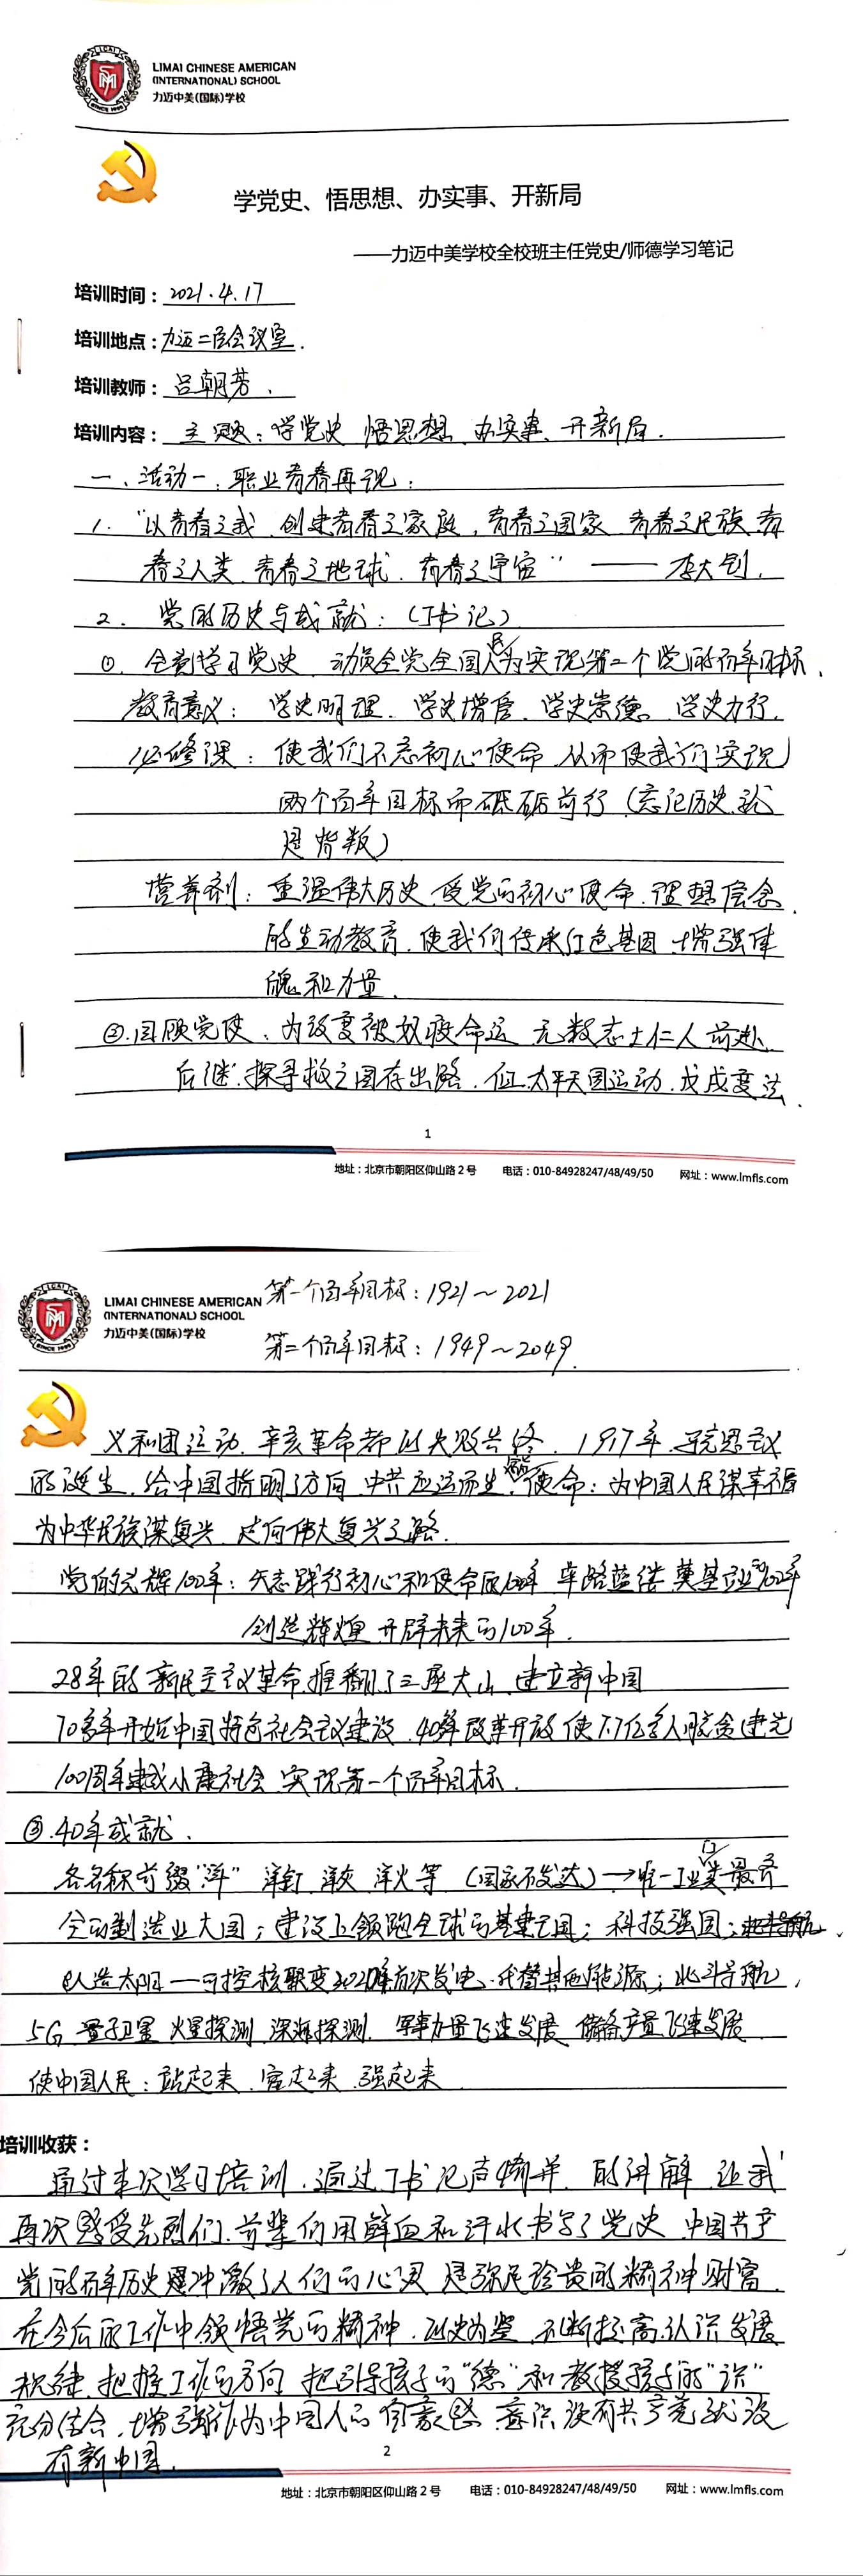 LIMAI CHINESE AMERICAN
(INTERNATIONAL) SCHOOL
力迈中美(国际)学校
学党史、悟思想、办实事、开新局
——力迈中美学校全校班主任党史/师德学习笔记
培训时间：2021.4.17
培训地点：力迈二层会议室.
培训教师：吕朝芳.
培训内容：主题：学党史 悟思想、办实事、开新局.
一、活动一：职业青春再现：
1. “以青春之我、创建青春之家庭，青春之国家 青春之民族 青
春之人类 青春之地球、青春之宇宙” —— 李大钊.
2. 党的历史与成就：（丁书记）
① 全党学习党史 动员全党全国人民为实现第二个党的百年目标、
教育意义： 学史明理、学史增信、学史崇德、学史力行.
必修课：使我们不忘初心使命 从而使我们实现
两个百年目标而砥砺前行（忘记历史就
是背叛）
营养剂：重温伟大历史 受党的初心使命、理想信念、
的生动教育、使我们传承红色基因 增强体
魄和力量.
②.回顾党史：为改变被奴役命运 无数志士仁人前赴
后继 探寻救亡图存出路、但太平天国运动、戊戌变法、
1
地址：北京市朝阳区仰山路2号 电话：010-84928247/48/49/50 网址：www.lmfls.com
LIMAI CHINESE AMERICAN
(INTERNATIONAL) SCHOOL
力迈中美(国际)学校
第一个百年目标：1921～2021
第二个百年目标：1949～2049.
义和团运动、辛亥革命都以失败告终. 1917年
的诞生、给中国指明了方向、中共应运而生，使命：为中国人民谋幸福
为中华民族谋复兴、走向伟大复兴之路.
党的光辉100年：矢志践行初心和使命的100年 筚路蓝缕 奠基立业的100年
创造辉煌 开辟未来的100年.
28年的新民主主义革命、推翻了三座大山、建立新中国
70多年开始中国特色社会主义建设、40多年改革开放 使7.7亿多人脱贫 建党
100周年建成小康社会 实现第一个百年目标.
③.40年成就.
各名称前缀“洋” 洋钉 洋灰 洋火等 （国家不发达）→唯一工业门类最齐
全的制造业大国；建设上领跑全球的基建王国；科技强国；
人造太阳—可控核聚变2020年首次发电、代替其他能源；北斗导航，
5G 量子卫星 火星探测 深海探测. 军事力量飞速发展 储备产量飞速发展
使中国人民：站起来、富起来、强起来
培训收获：
通过本次学习培训，通过丁书记声情并 的讲解 让我
再次感受先烈们、前辈们用鲜血和汗水书写了党史 中国共产
党的百年历史 冲激了人们的心灵 是弥足珍贵的精神财富.
在今后的工作中领悟党的精神、以史为鉴 不断提高认识发展
规律、把握工作的方向 把引导孩子的“德”和教授孩子的“识”
充分结合、增强作为中国人的自豪感 意识没有共产党就没
有新中国.
2
地址：北京市朝阳区仰山路2号 电话：010-84928247/48/49/50 网址：www.lmfls.com